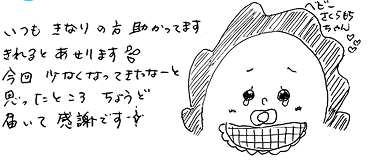 いつも きなりの方 助かってます
きれると あせります
今回 少なくなってきたなーと
思ったところ ちょうど
届いて 感謝です
へどこ
さくらもち
ちゃん